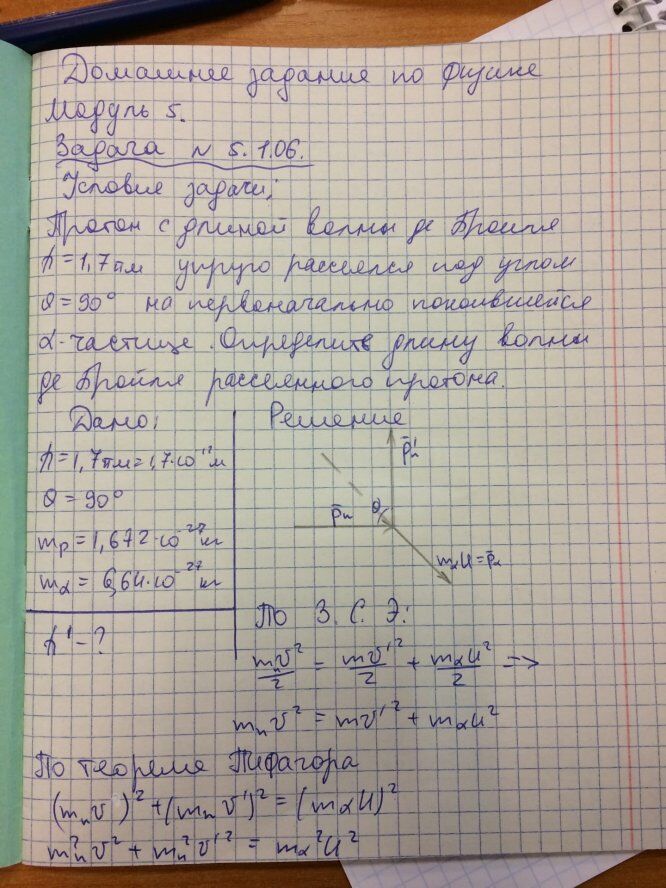 Домашнее задание по физике
Модуль 5.
Задача № 5.1.06.
Условие задачи:
Протон с длиной волны де Бройля
λ = 1,7 пм упруго рассеялся под углом
θ = 90° на первоначально покоившейся
α-частице. Определить длину волны
де Бройля рассеянного протона.
Дано:
λ = 1,7 пм = 1,7·10⁻¹² м
θ = 90°
mp = 1,672·10⁻²⁷ кг
mα = 6,64·10⁻²⁷ кг
λ' - ?
Решение
p̄п'
p̄п
θ
mαU = p̄α
По З. С. Э.:
mпv²/2 = mv'²/2 + mαU²/2 =>
mпv² = mv'² + mαU²
По теореме Пифагора
(mпv)² + (mпv')² = (mαU)²
mп²v² + mп²v'² = mα²U²